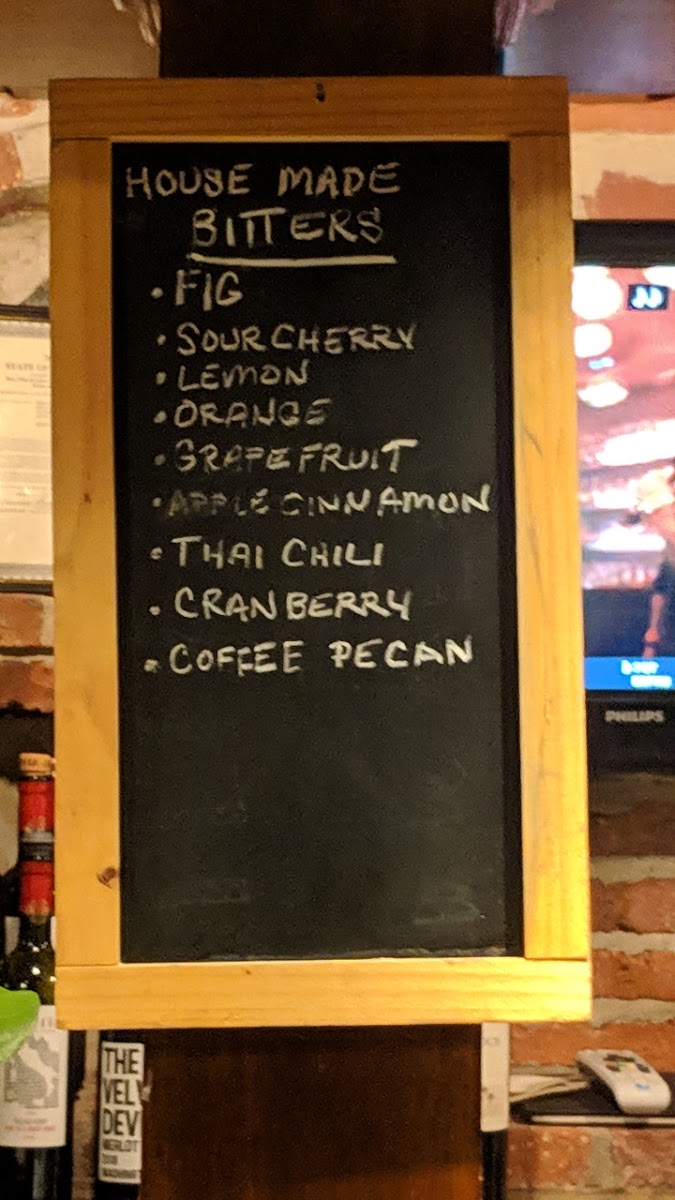 HOUSE MADE
BITTERS
• FIG
• SOUR CHERRY
• LEMON
• ORANGE
• GRAPEFRUIT
• APPLE CINNAMON
• THAI CHILI
• CRANBERRY
• COFFEE PECAN
PHILIPS
THE
VEL
DEV
MERLOT